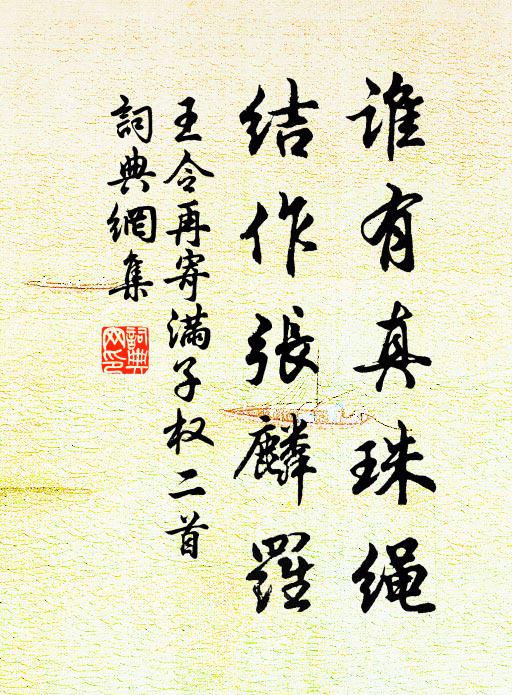 谁有真珠绳
结作张麟罗
王令再寄满子权二首
词典网集
词典
网印